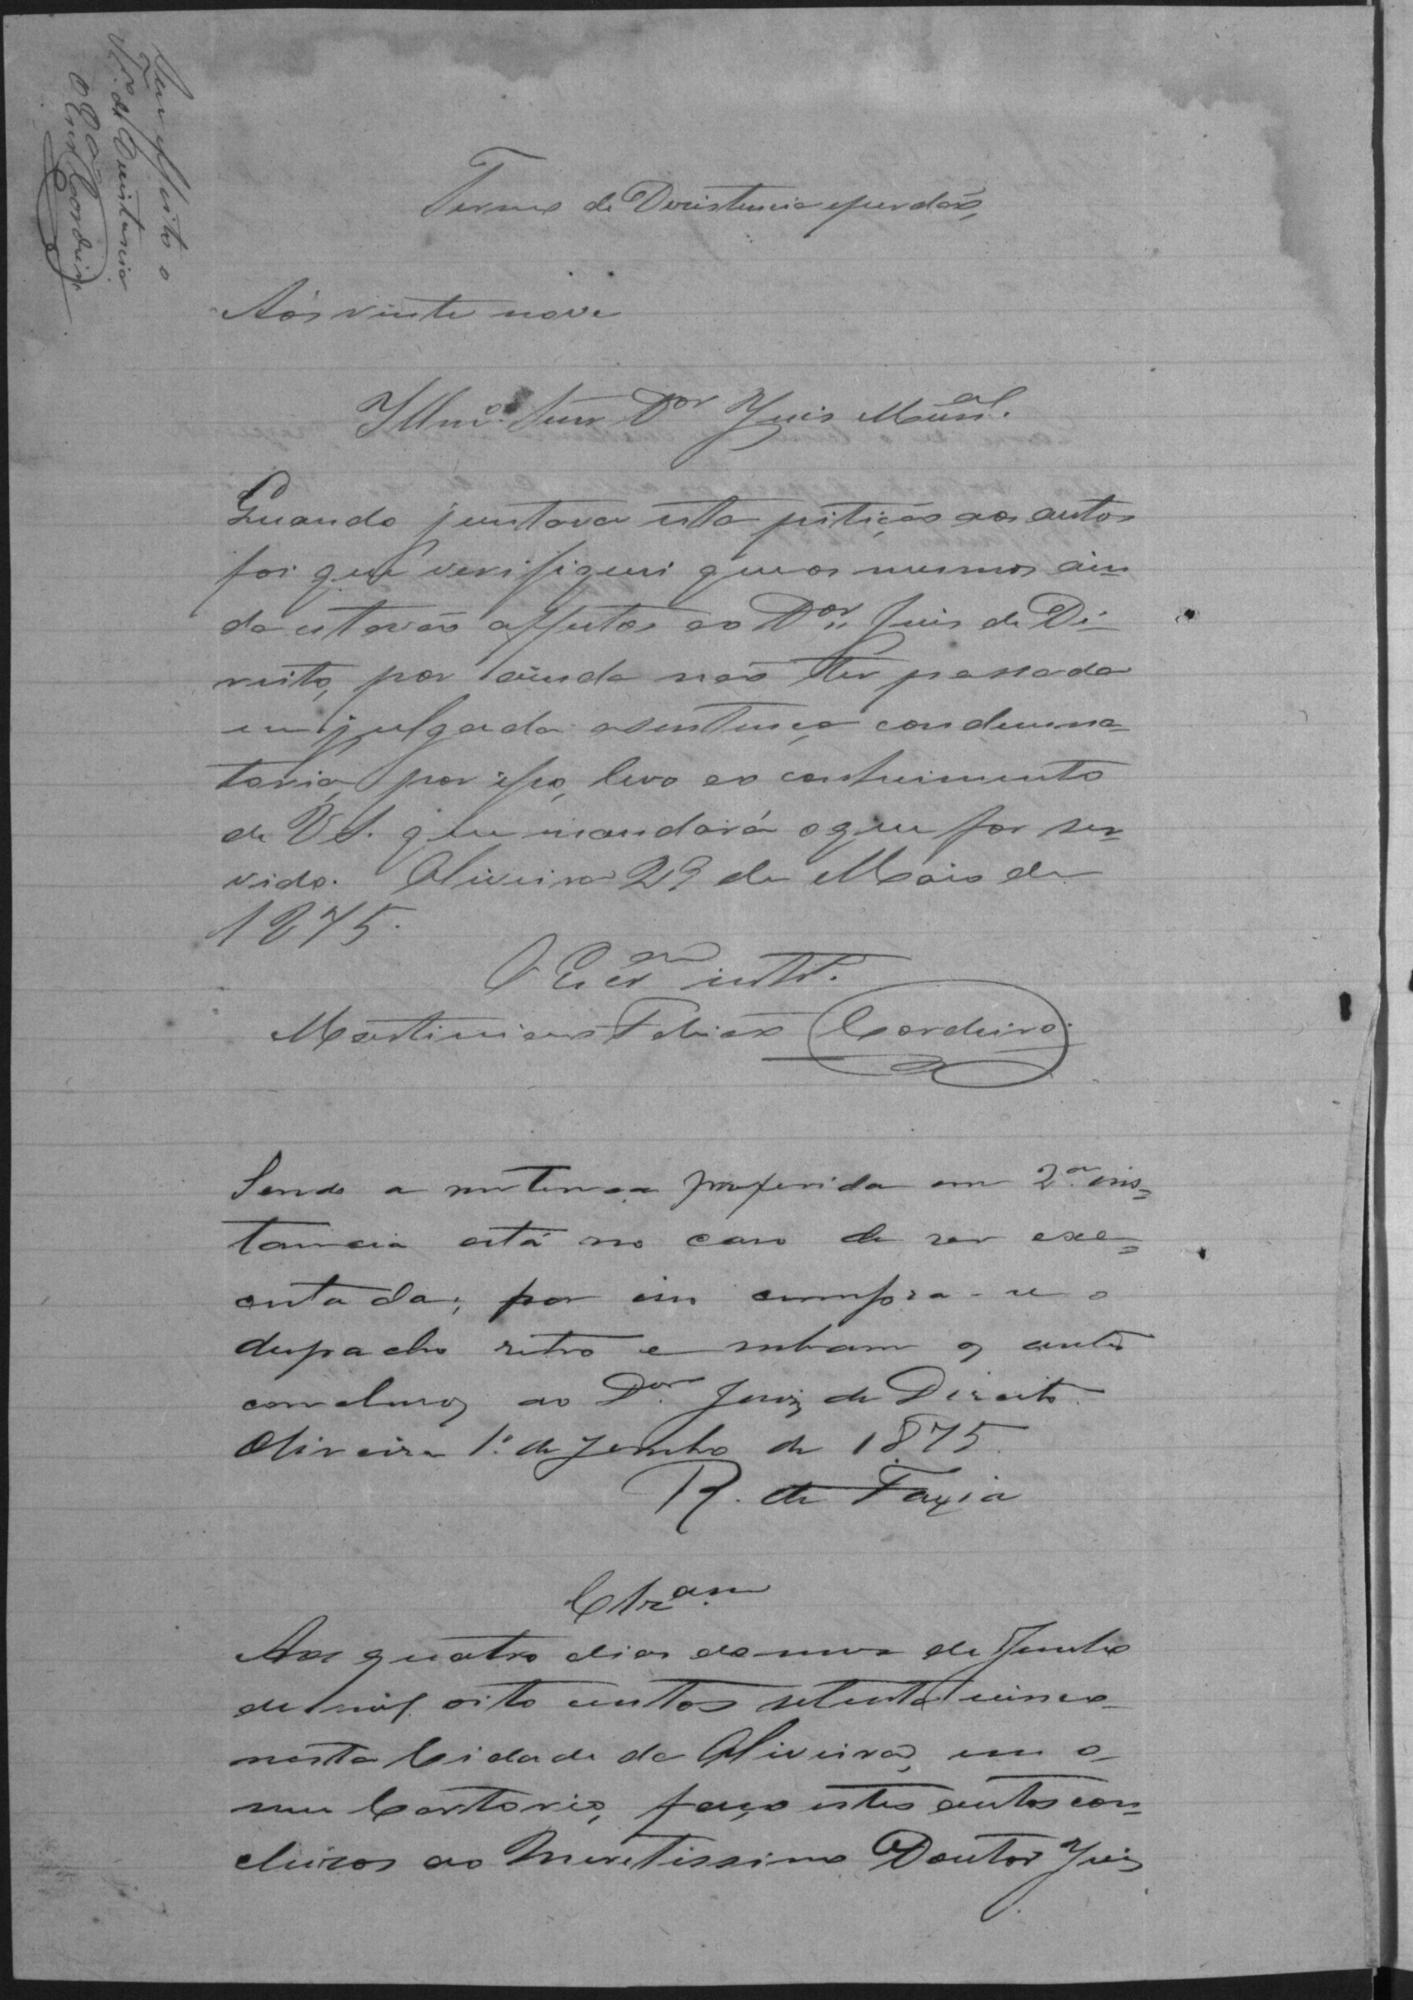 Sem effeito o
Tr.o de Desistencia
O Escr.am Cordeiro
Termo de Desistencia e perdão,
Aos vinte nove
Illmo. Snr. Dor Juis Mun.al
Quando juntava esta pitição aos autos
foi que verifiquei que os mesmos ain-
da estavão affectos ao Dor. Juis de Di-
reito, por ainda não ter passado
em julgado a sentença condemna-
toria, por isso, levo ao conhecimento
de V.S. que mandará o que for ser-
vido. Oliveira 29 de Maio de
1875.
O Escr.am int.o
Martiniano Cordeiro
Sendo a sentença proferida em 2.a ins-
tancia está no caso de ser exe-
cutada; por isso cumpra-se o
despacho retro e subam os autos
conclusos ao Dor. Juiz de Direito.
Oliveira 1.o de Junho de 1875.
R. de Faria
Clz.am
Aos quatro dias do mes de Junho
de mil oito centos setenta cinco
nesta Cidade da Oliveira, em o
meu Cartorio, faço estes autos con-
clusos ao Meretissimo Doutor Juis